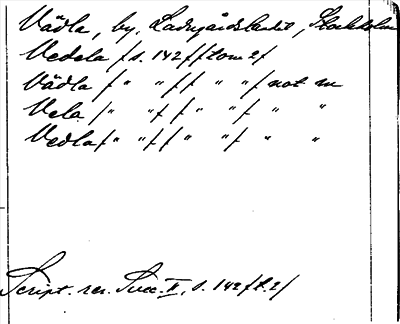 Vädla, by, Ladugårdslandet, Stockholm
Vedela /s. 142/ /tom 2/
Vädla /" "/ / " "/ not m
Vela /" "/ / " "/ " "
Vedla /" "/ / " "/ " "
Script. rer. Suec. II, s. 142 /t. 2/